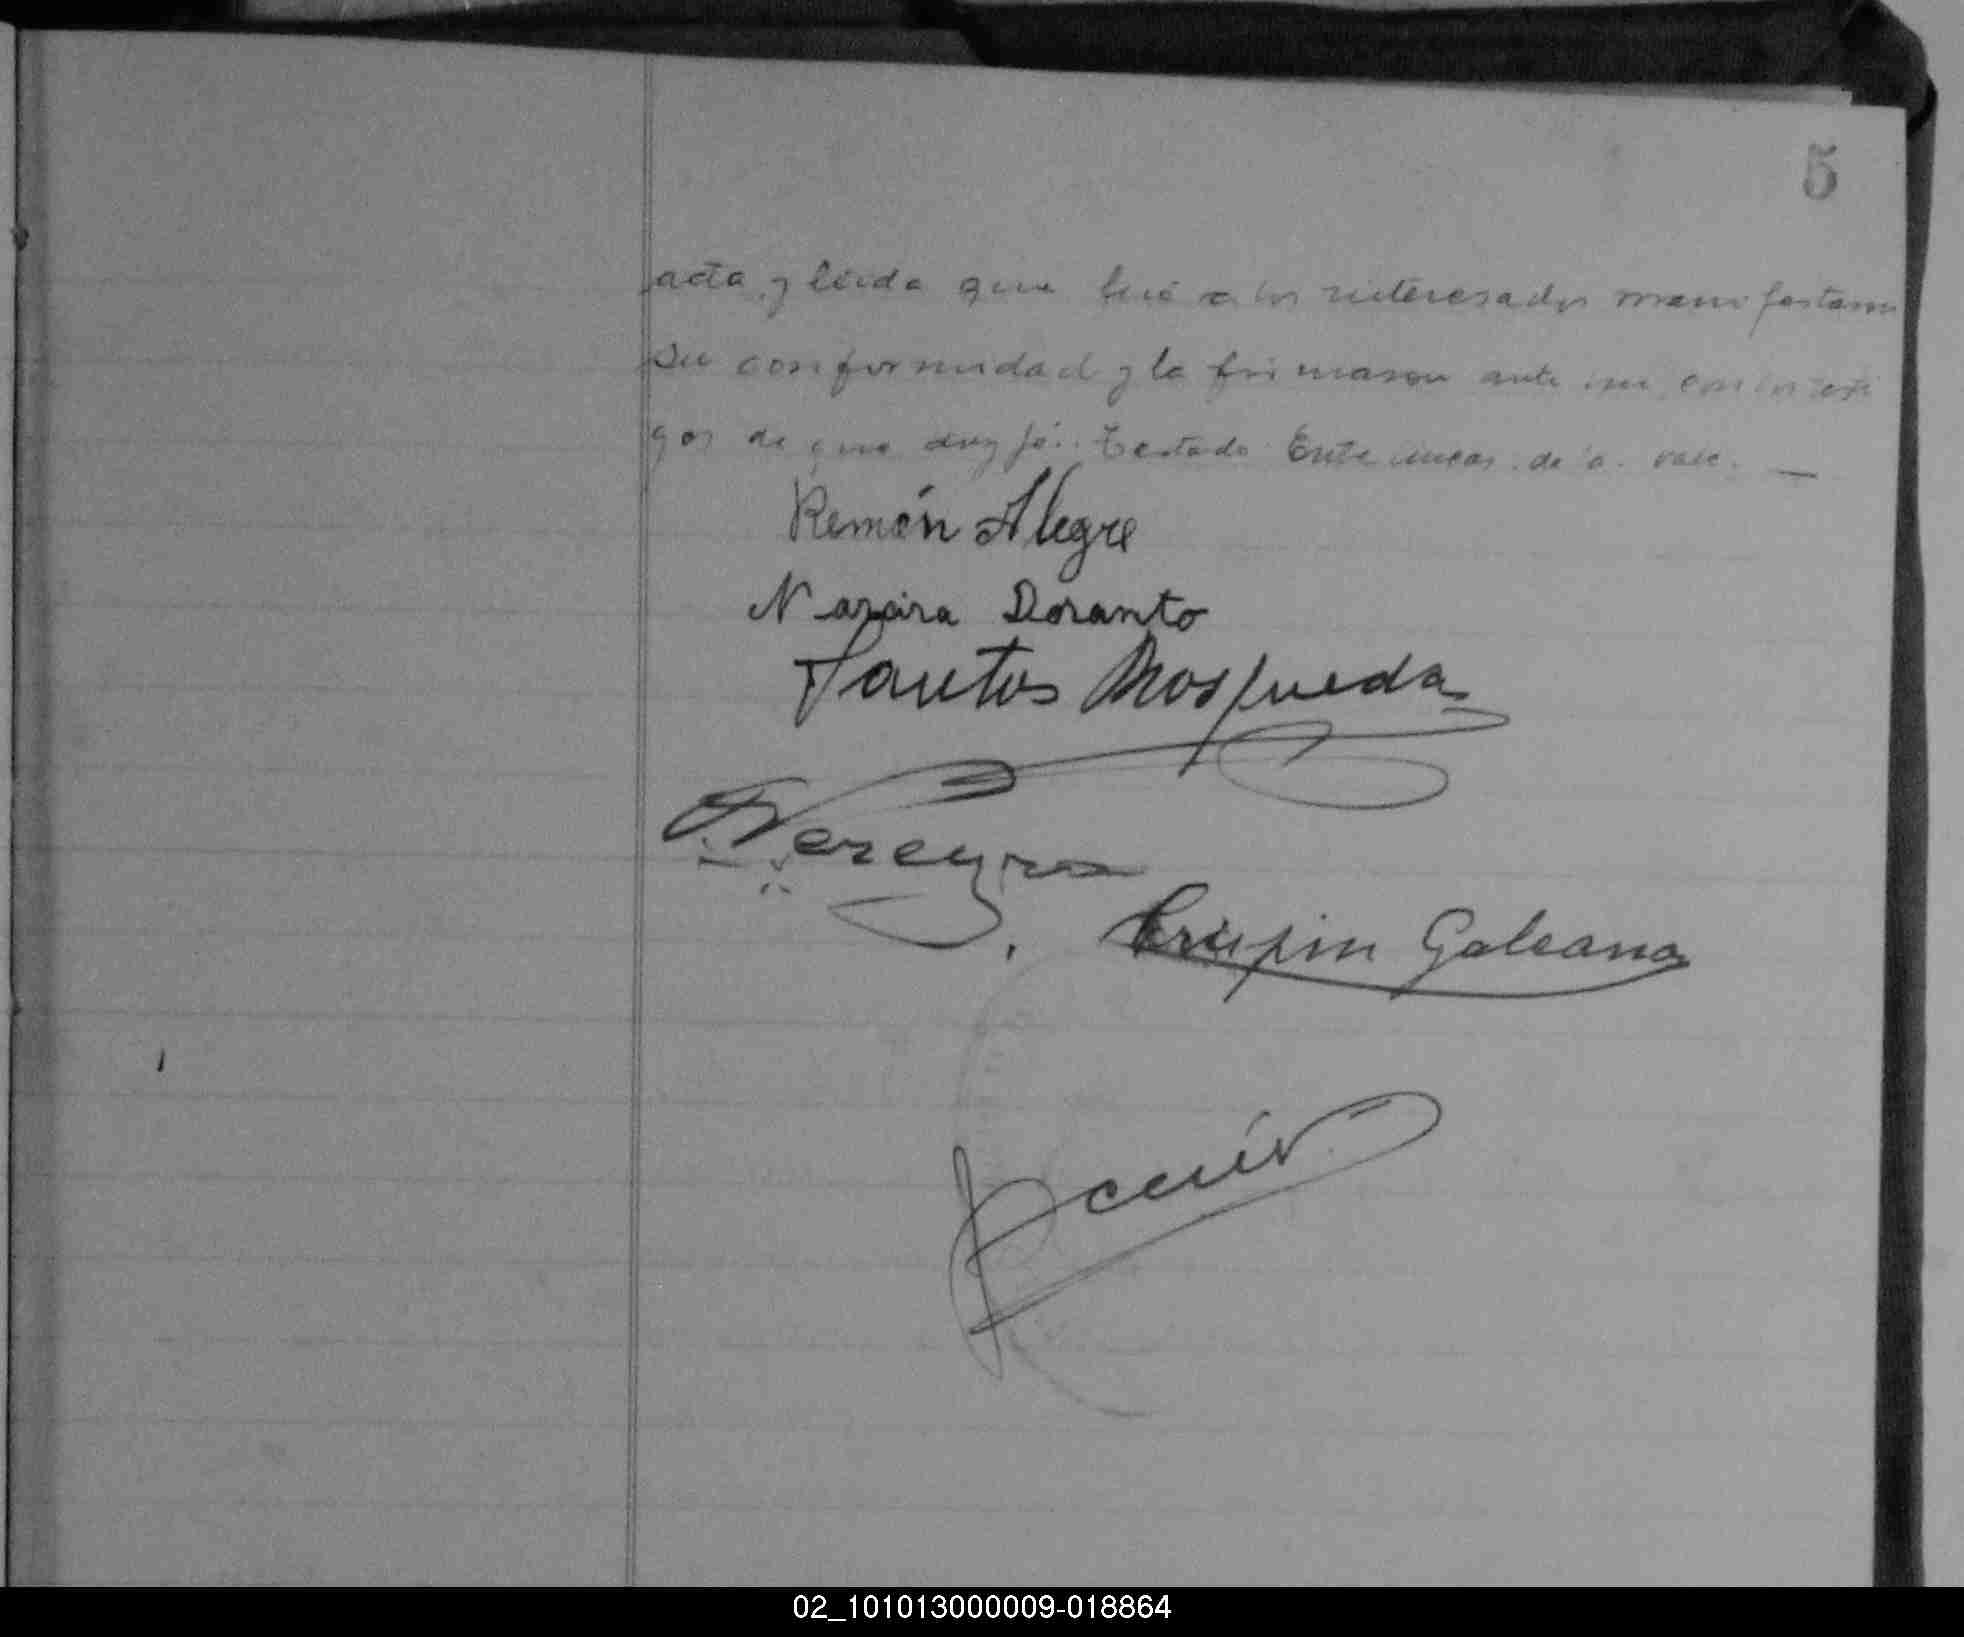 5
acta, y leida que fué a los interesados manifestaron
su conformidad y la firmaron ante mi, con los testi
gos de que doy fé. Testado Entre lineas. de a. vale. —
Remón Alegre
Doranto
Santos Mosqueda
Pereyra
Crispin Galeana
02_101013000009-018864